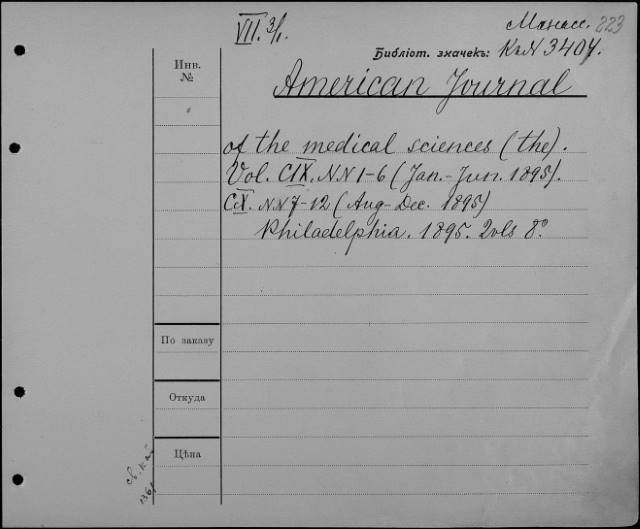 VII. 3/1.
Манасс. 223
Библіот. значекъ: К.N 3407.
Инв.
№
American Journal
of the medical sciences (the).
Vol. CIX. NN 1-6 (Jan.-Jun. 1895).
CX. NN 7-12 (Aug-Dec. 1895)
Philadelphia. 1895. 2vls 8°
По заказу
Откуда
Цѣна